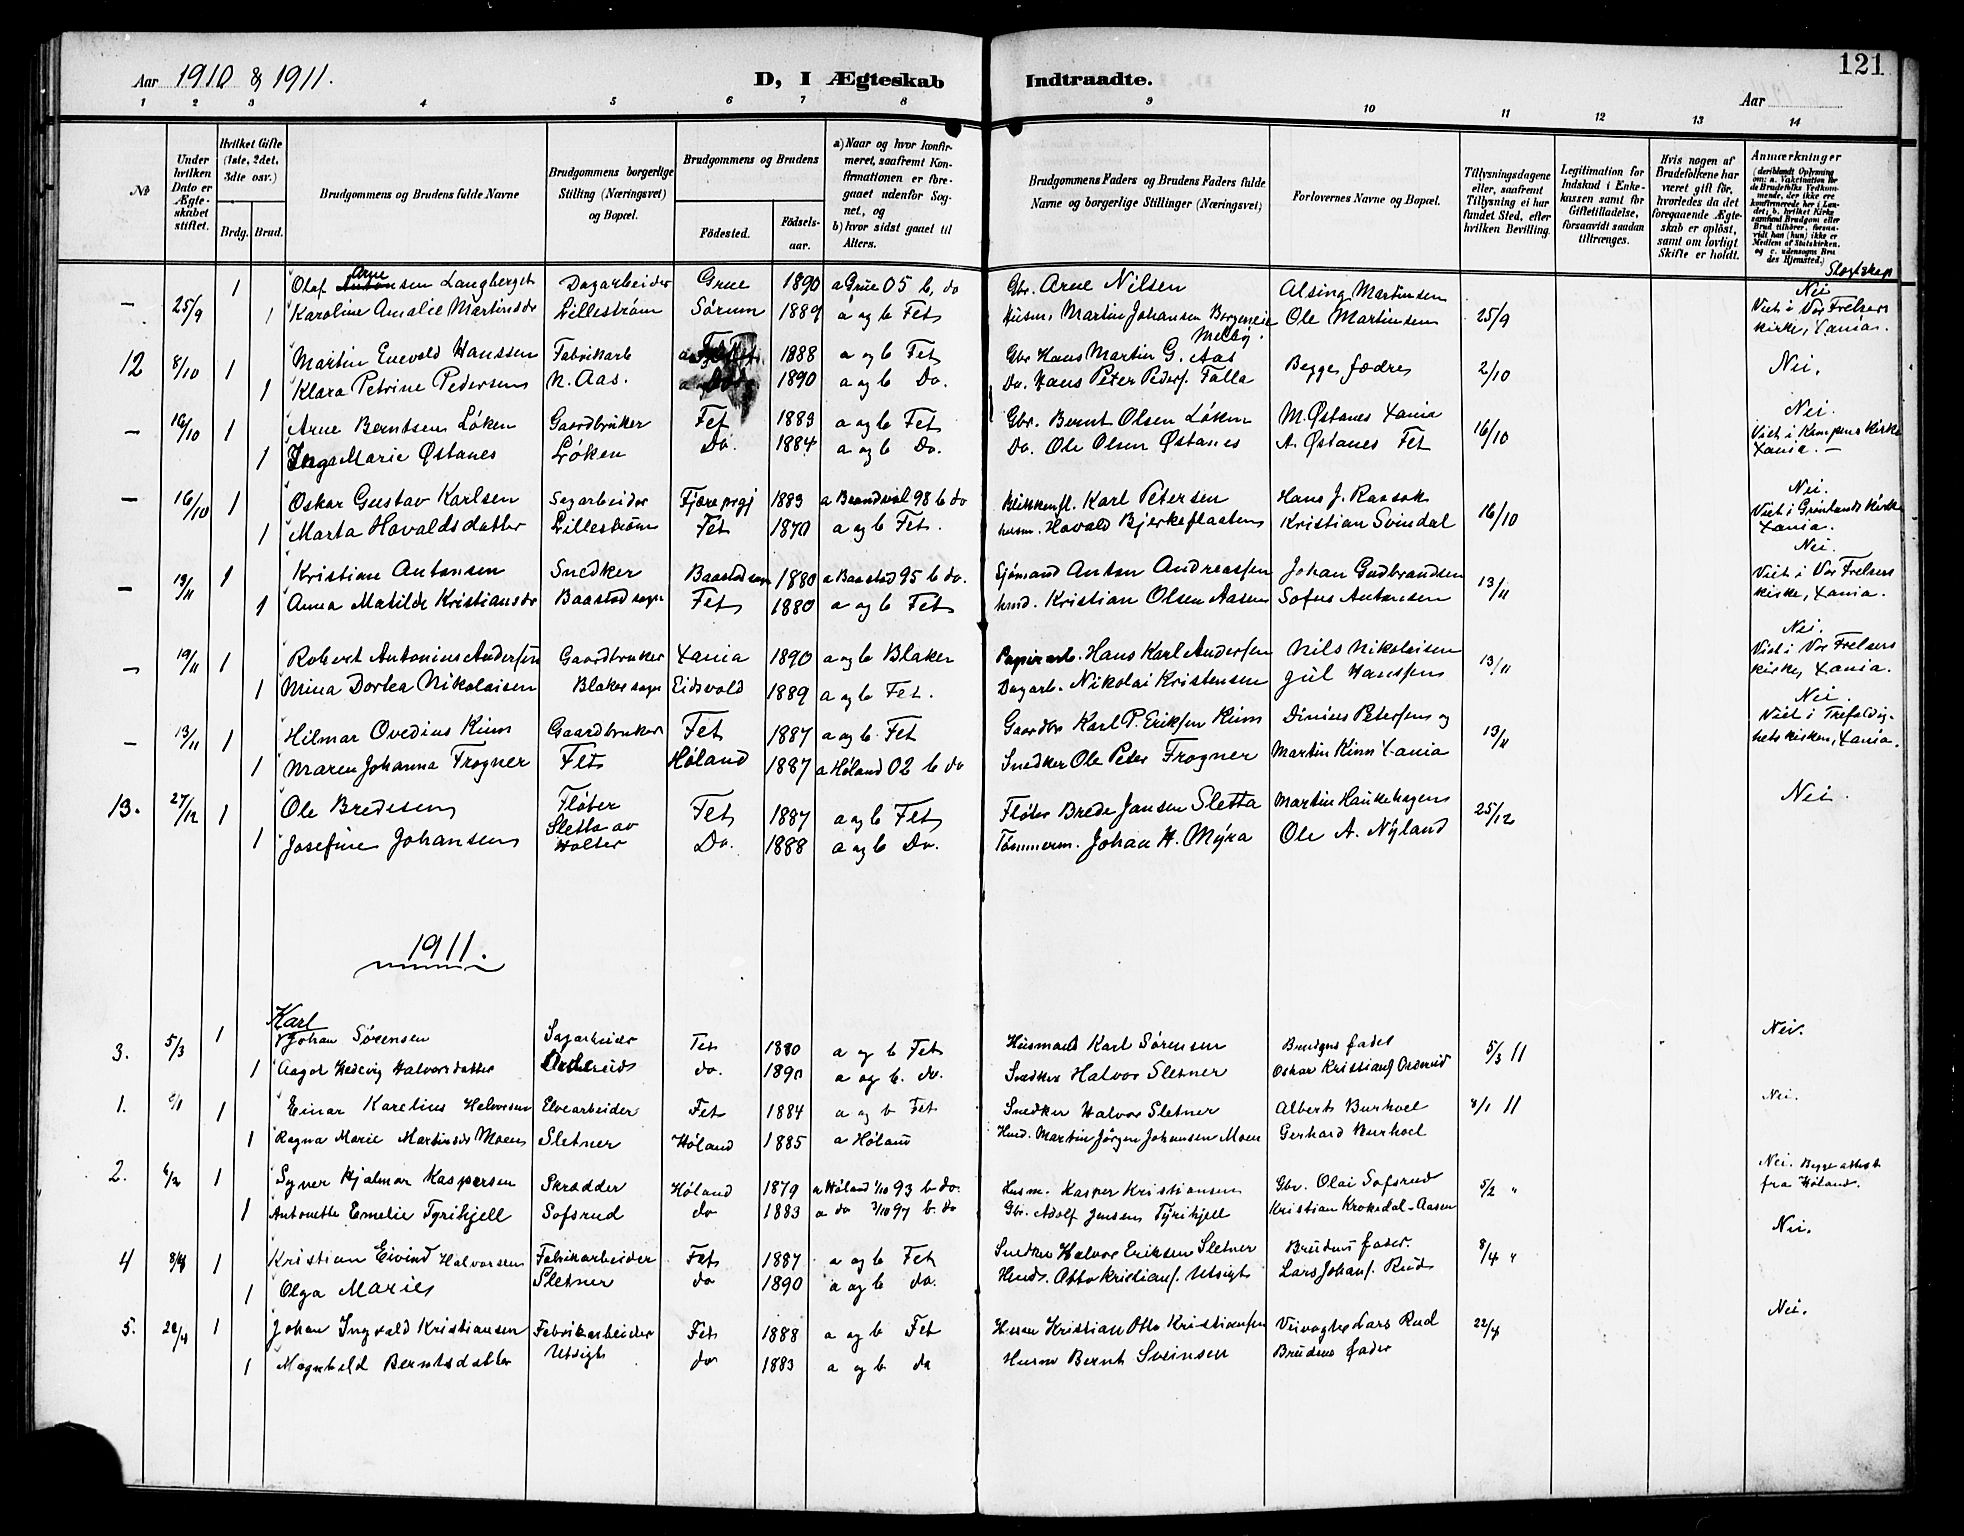 121
Aar 1910 & 1911. D, I Ægteskab Indtraadte. Aar
1 2 3 4 5 6 7 8 9 10 11 12 13 14
№
Under hvilken Dato er Ægteskabet stiftet.
Hvilket Gifte (1ste, 2det, 3dte osv.)
Brdg. Brud.
Brudgommens og Brudens fulde Navne
Brudgommens borgerlige Stilling (Næringsvei) og Bopæl.
Brudgommens og Brudens
Födested. Födselsaar.
a) Naar og hvor konfirmeret, saafremt Konfirmationen er foregaaet udenfor Sognet, og
b) hvor sidst gaaet til Alters.
Brudgommens Faders og Brudens Faders fulde Navne og borgerlige Stillinger (Næringsvei)
Forlovernes Navne og Bopæl.
Tillysningsdagene eller, saafremt Tillysning ei har fundet Sted, efter hvilken Bevilling.
Legitimation for Indskud i Enkekassen samt for Giftetilladelse, forsaavidt saadan tiltrænges.
Hvis nogen af Brudefolkene har været gift för, hvorledes da det foregaaende Ægteskab er oplöst, samt om lovligt Skifte er holdt.
Anmærkninger (deriblandt Oplysning om: a. Vakcination for de Brudefolks Vedkommende, der ikke ere konfirmerede her i Landet; b. hvilket Kirkesamfund Brudgom eller Brud tilhörer, forsaavidt han (hun) ikke er Medlem af Statskirken. og c. udensogns Brudes Hjemsted.)
Slægtskap
Arne
Olaf Langberget Dagarbeider Grue 1890 a Grue 05 b, do Gbr. Arne Nilsen Alsing Martinsen Nei
— 25/9 1 1 Karoline Amalie Martinsdr Lillestrøm Sørum 1889 a og b Fet Husm. Martin Johansen Ole Martinsen 25/9 Viet i Vor Frelsers kirke, Xania.
12 8/10 1 Martin Enevold Hanssen Fabrikarb 1888 a og b Fet Gbr Hans Martin G. Aas Begges fædre 2/10 Nei.
1 Klara Petrine Pedersen N. Aas. 1890 a og b Do. Do. Hans Peter Peders. Falla
— 16/10 1 Arne Berntsen Løken Gaardbruker Fet 1883 a og b Fet Gbr. Bernt Olsen Løken M. Østanes Xania 16/10 Nei.
1 Inga Marie Østanes Løken Do. 1884 a og b Do. Do. Ole Olsen Østanes A. Østanes Fet Viet i Kampens Kirke Xania. —
— 16/10 1 Oskar Gustav Karlsen Sagarbeider Fjære prgj 1883 a Brandval 98 b do Blikkensl. Karl Petersen Hans J. Raasok 16/10 Nei.
1 Marta Hovaldsdatter Lillestrøm Fet 1870 a og b Fet. husm. Hovald Bjerkeflaaten Kristian Svindal Viet i Grønlands Kirke Xania.
— 13/11 1 Kristian Antonsen Snedker Baastad sogn 1880 a Baastad 95 b do. Sjømand Anton Andreassen Johan Gudbrandsen 13/11 Nei.
1 Anna Matilde Kristiansdr Baastad sogn Fet 1880 a og b Fet husd. Kristian Olsen Aasen Sofus Antonsen Viet i Vor Frelsers kirke, Xania.
— 19/11 1 Robert Antonius Andersen Gaardbruker Xania 1890 a og b Blaker Papirarb. Hans Karl Andersen Nils Nikolaisen 13/11 Nei.
1 Mina Dortea Nikolaisen Blaker sogn Eidsvold 1889 a og b Fet. Dagarb. Nikolai Kristensen Jul Hanssen Viet i Vor Frelsers kirke, Xania.
— 13/11 1 Hilmar Ovedius Kinn Gaardbruker Fet 1887 a og b Fet Gaardbr Karl P. Eriksen Kinn Dinius Petersen og 13/11 Nei.
1 Maren Johanna Frogner Fet Høland 1887 a Høland 02 b do Snedker Ole Peter Frogner Martin Kinn Xania Viet i Trefoldighets kirken, Xania.
13. 27/12 1 Ole Bredesen Fløter Fet 1887 a og b Fet Fløter Brede Jansen Sletta Martin Haukehagen 25/12 Nei.
1 Josefine Johansen Sletta av Holter Do. 1888 a og b Do. Tømmerm. Johan H. Myra Ole A. Nyland
1911.
Karl
3. 5/3 1 Johan Sørensen Sagarbeider Fet 1880 a og b Fet Husmand Karl Sørensen Brudgns fader 5/3 11 Nei.
1 Aagot Hedevig Halvorsdatter 1890 a og b. do. Snedker Halvor Sletner Oskar Kristians. Orderud
1. 1 Einar Karelius Halvorsen Elvearbeider Fet 1884 a og b Fet Snedker Halvor Sletner Albert Burhoel 8/1 11 Nei.
1 Ragna Marie Martinsdr Moen Sletner Høland 1885 a Høland Husd. Martin Jørgen Johansen Moen Gerhard Burhoel
2. 6/2 1 Syver Hjalmar Kaspersen Skrædder Høland 1879 a Høland 1/10 93 b do. Husm. Kasper Kristiansen Gbr. Olai Sofsrud 5/2 " Nei. Begge attest fra Høland.
1 Antonette Emelie Tyrihjell Sofsrud do 1883 a do 3/10 97 b. do Gbr. Adolf Jensen Tyrihjell Kristian Krokedal-Aasen
4 8/4 1 Kristian Eivind Halvorsen Fabrikarbeider Fet 1887 a og b Fet Snedker Halvor Eriksen Sletner Brudens fader. 8/4 " Nei.
1 Olga Marie Sletner do 1890 a og b do. Husds. Otto Kristians. Utsigt Lars Johans. Rud
5. 22/4 1 Johan Ingvald Kristiansen Fabrikarbeider Fet 1888 a og b Fet Husm Kristian Otto Kristiansen Veivogter Lars Rud 22/4 Nei.
1 Magnhild Berntsdatter Utsigt do 1883 a og b do Husm Bernt Svensen Brudens fader